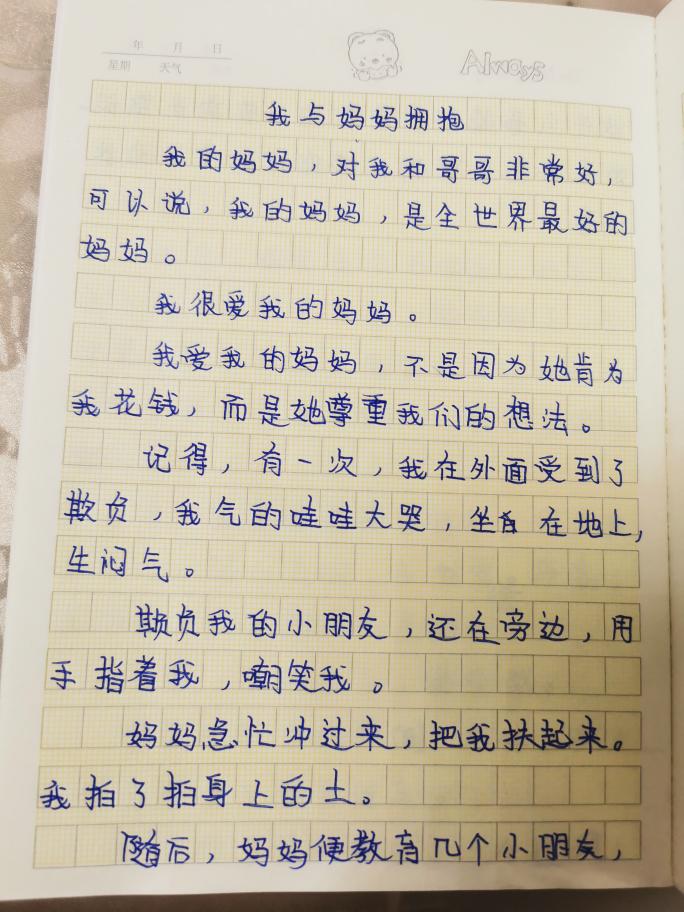 年 月 日
星期 天气
Always
我与妈妈拥抱
我的妈妈，对我和哥哥非常好，
可以说，我的妈妈，是全世界最好的
妈妈。
我很爱我的妈妈。
我爱我的妈妈，不是因为她肯为
我花钱，而是她尊重我们的想法。
记得，有一次，我在外面受到了
欺负，我气的哇哇大哭，坐在地上，
生闷气。
欺负我的小朋友，还在旁边，用
手指着我，嘲笑我。
妈妈急忙冲过来，把我扶起来。
我拍了拍身上的土。
随后，妈妈便教育几个小朋友，